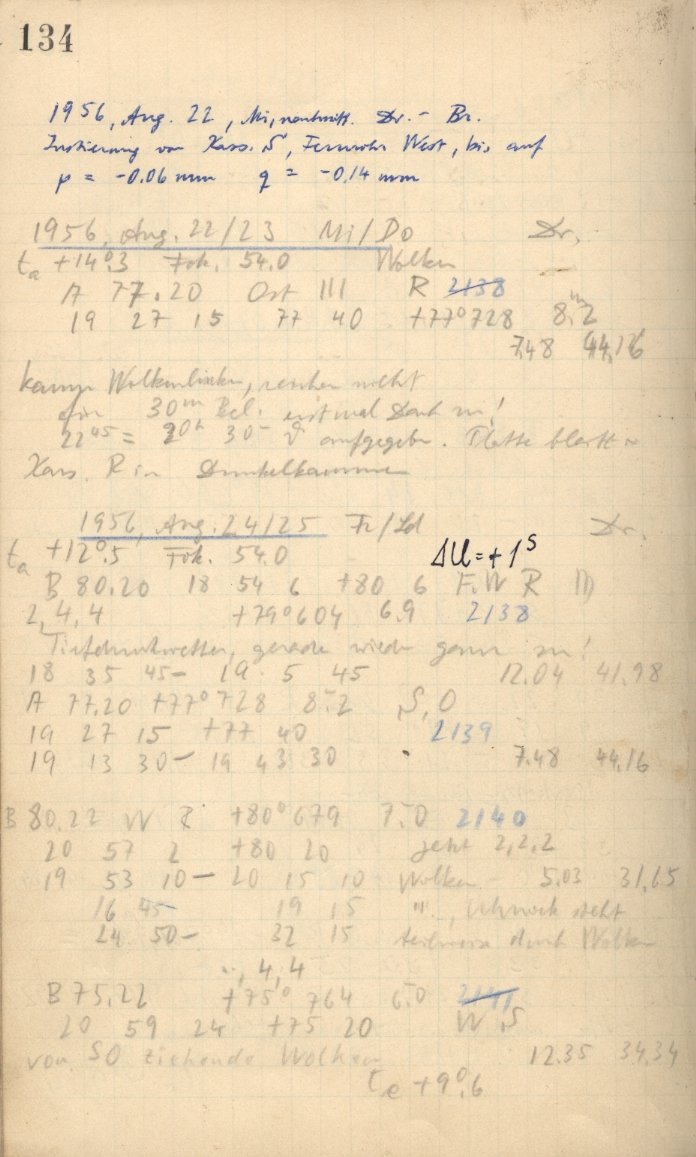 134
1956, Aug. 22, Mi, nachmitt. Dr. - Br.
Justierung von Kass. S, Fernrohr West, bis auf
p = -0.06 mm q = -0.14 mm
1956, Aug. 22/23 Mi/Do Dr.
ta +14°.3 Fok. 54.0 Wolken
A 77.20 Ost III R 2138
19 27 15 77 40 +77°728 8.m2
7.48 44.16
kaum Wolkenlücken, reichen nicht
für 30m Bel. erst mal Dach zu!
22 45 = 20h 30- aufgegeben. Platte bleibt
Kass. R in Dunkelkammer
1956, Aug. 24/25 Fr/Sd Dr.
ta +12°.5 Fok. 54.0 ΔU = +1s
B 80.20 18 54 6 +80 6 F.W R III
2,4,4 +79°604 6.9 2138
gerade wieder ganz zu!
18 35 45- 19 5 45 12.04 41.98
A 77.20 +77°728 8.2 S, O
19 27 15 +77 40 2139
19 13 30- 19 43 30 7.48 44.16
B 80.22 W R +80°679 7.0 2140
20 57 2 +80 20 jetzt 2,2,2
19 53 10- 20 15 10 Wolken 5.03 31.65
16 45- 19 15 " steht
24 50- 32 15 teilweise durch Wolken
4,4
B 75.22 +75° 764 6.0 2141
20 59 24 +75 20 W S
von SO ziehende Wolken 12.35 34.34
te +9°.6